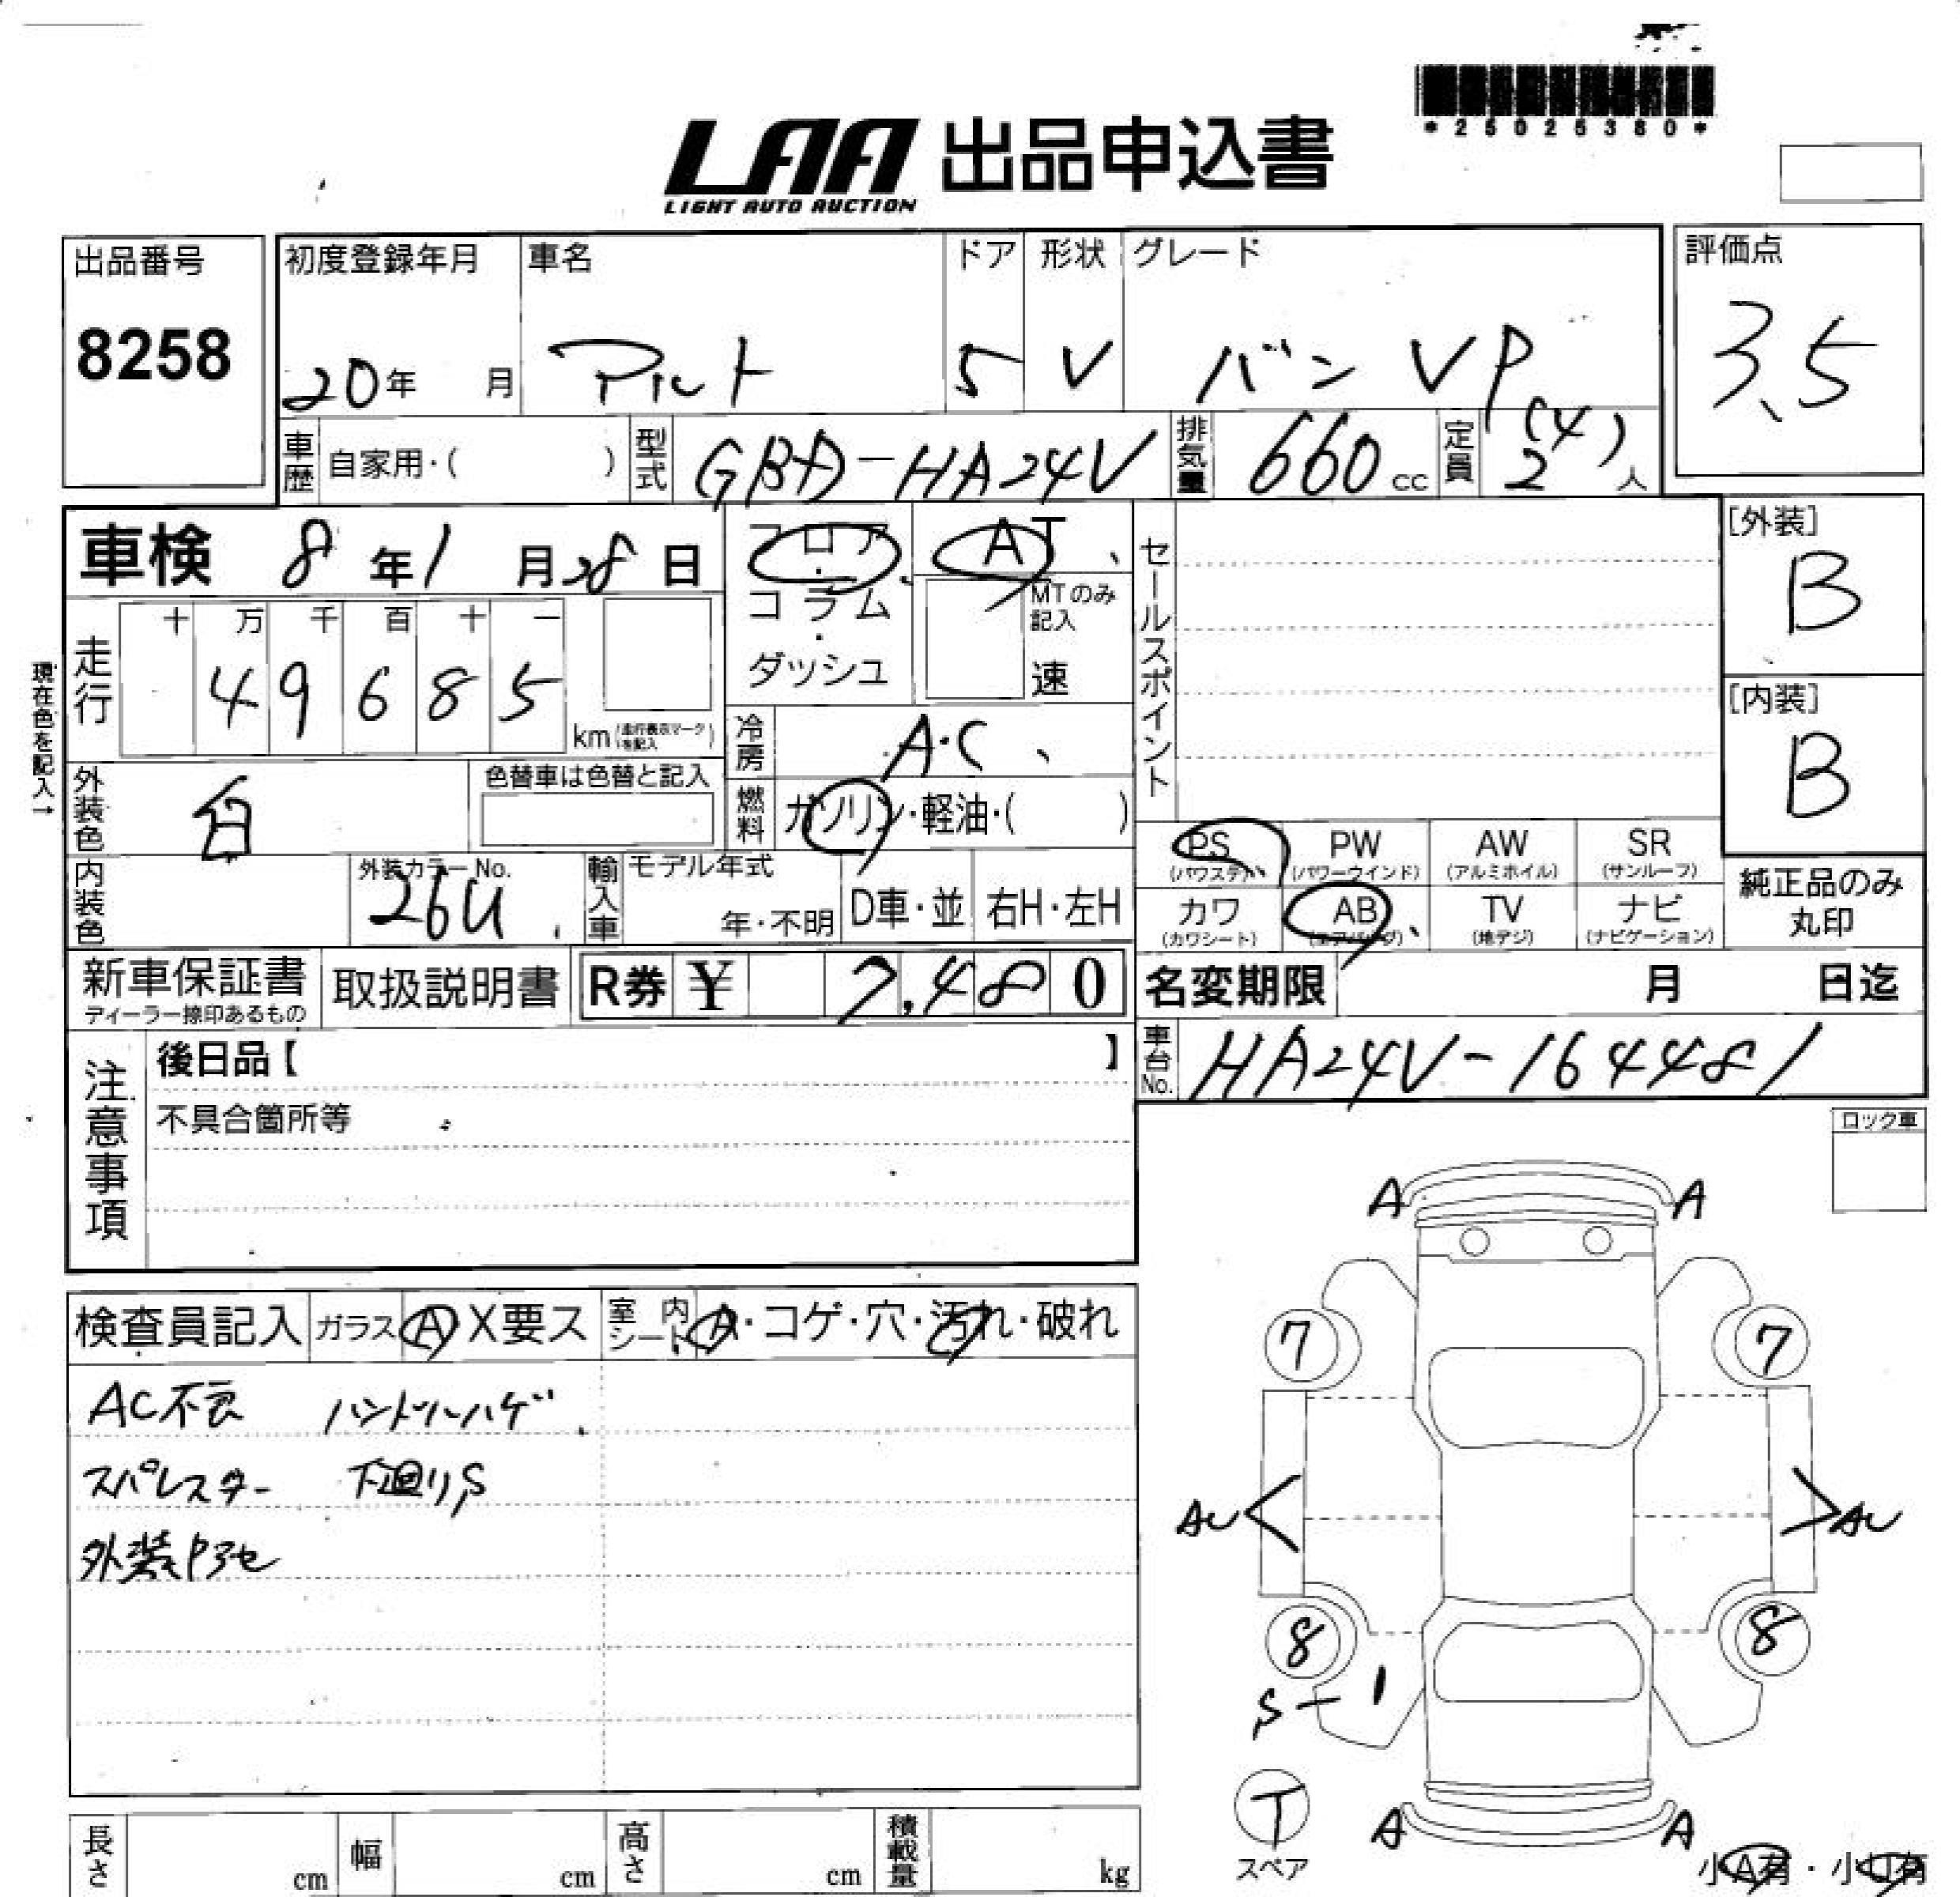 *25025380*
LAA 出品申込書
LIGHT AUTO AUCTION
出品番号
8258
初度登録年月
20年 月
車名
アルト
ドア
5
形状
V
グレード
バン VP
評価点
3.5
車歴 自家用・( )
型式 GBD-HA24V
排気量 660 cc
定員 2(4)人
車検 8年1月28日
フロア・コラム・ダッシュ
AT
MTのみ記入
速
セールスポイント
[外装]
B
[内装]
B
現在色を記入→
走行
十 万 千 百 十 一
4 9 6 8 5
km (走行表示マークを記入)
冷房 A・C
外装色 白
色替車は色替と記入
燃料 ガソリン・軽油・( )
PS (パワステ)
PW (パワーウインド)
AW (アルミホイル)
SR (サンルーフ)
カワ (カワシート)
AB (エアバッグ)
TV (地デジ)
ナビ (ナビゲーション)
純正品のみ
丸印
内装色
外装カラーNo.
26U
輸入車
モデル年式
年・不明
D車・並
右H・左H
新車保証書
ディーラー捺印あるもの
取扱説明書
R券 ¥ 7,480
名変期限 月 日迄
車台No. HA24V-164481
注意事項
後日品【 】
不具合箇所等
ロック車
検査員記入
ガラス A X要ス
室内シート A・コゲ・穴・汚れ・破れ
AC不良 ハンドルハゲ
スパレスター 下廻りS
外装
A A
7 7
AU AU
8 8
S-1
T
スペア
A A
小A有・小U有
長さ cm
幅 cm
高さ cm
積載量 kg